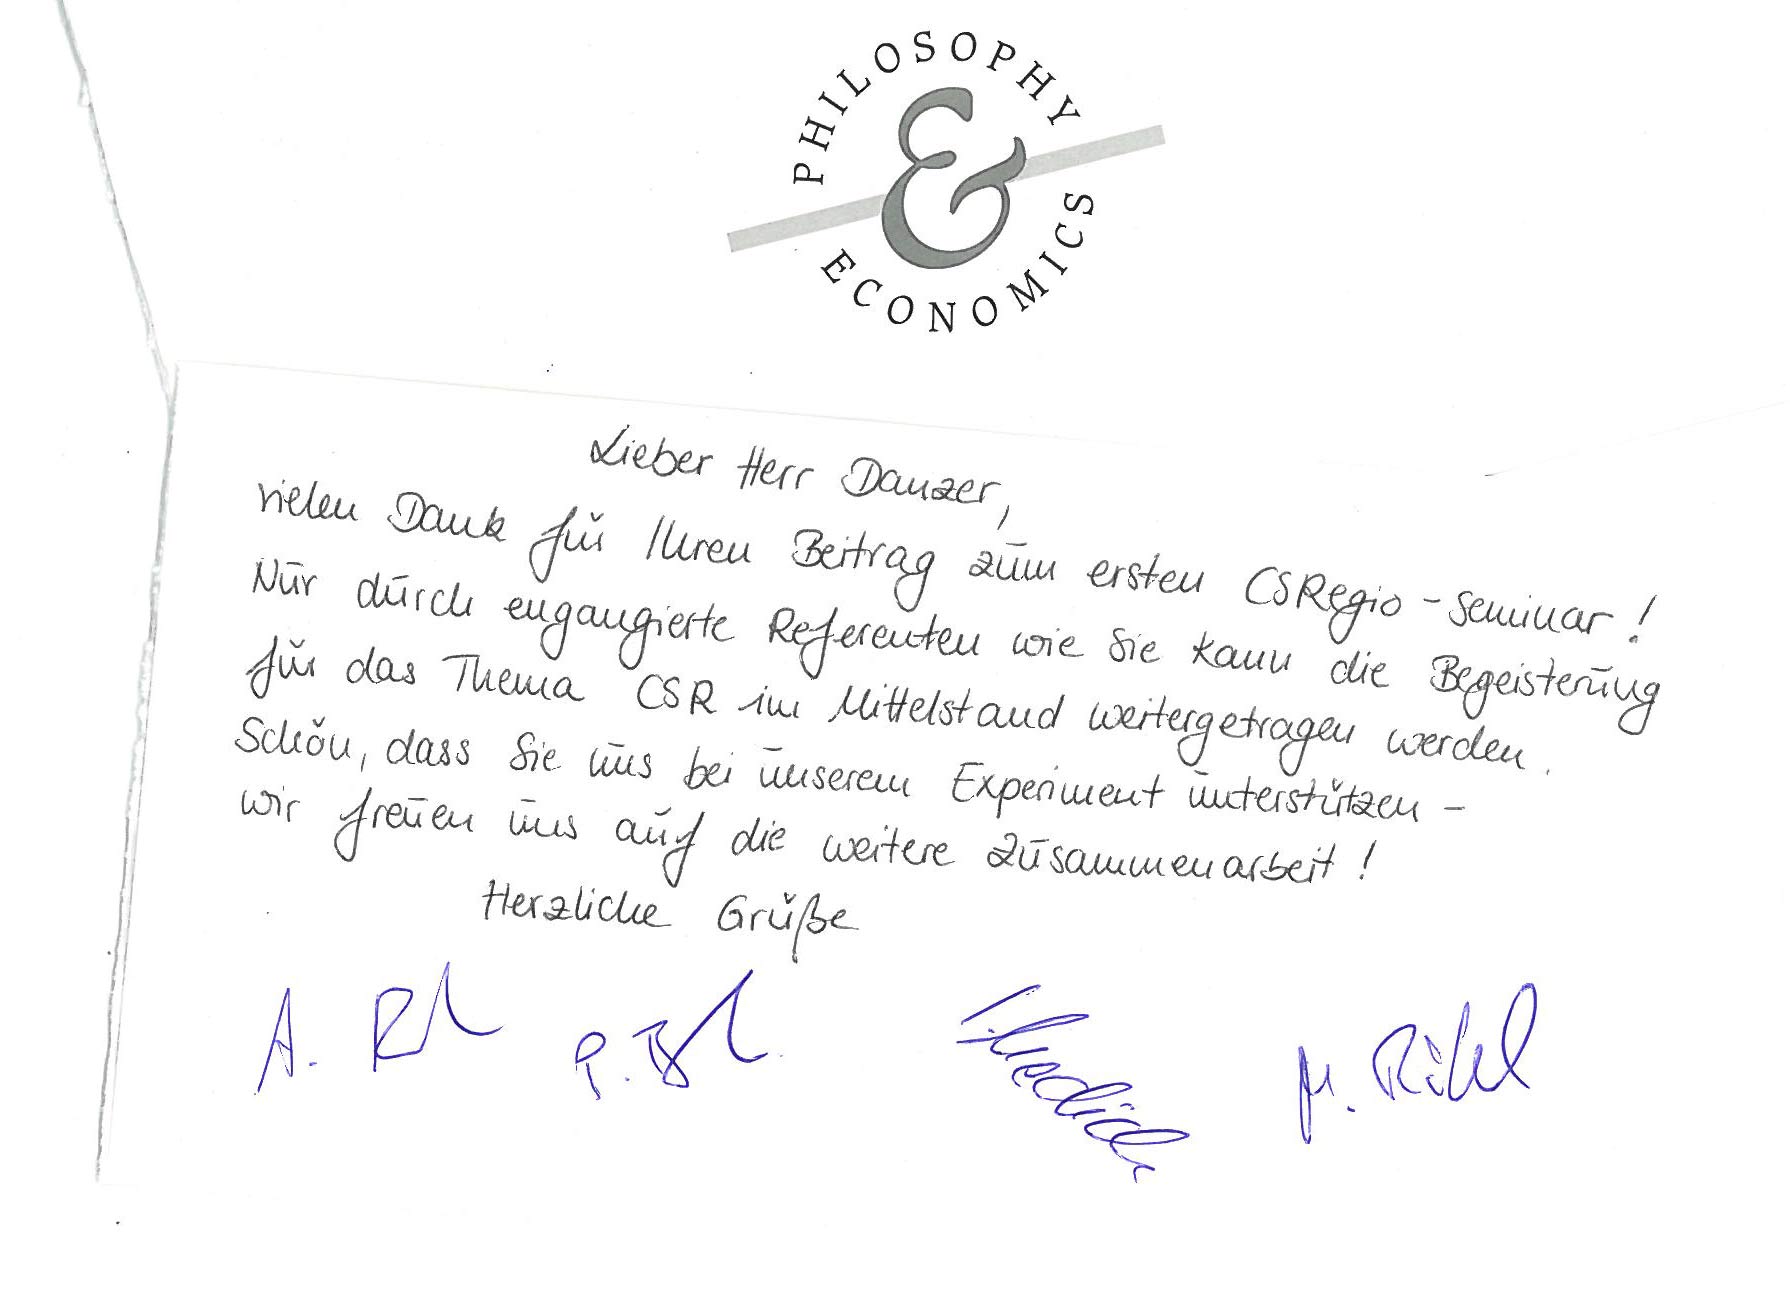 PHILOSOPHY
&
ECONOMICS
Lieber Herr Danzer,
vielen Dank für Ihren Beitrag zum ersten CSRegio-Seminar!
Nur durch engangierte Referenten wie Sie kann die Begeisterung
für das Thema CSR im Mittelstand weitergetragen werden.
Schön, dass Sie uns bei unserem Experiment unterstützen -
wir freuen uns auf die weitere Zusammenarbeit!
Herzliche Grüße
A.
P.
M.